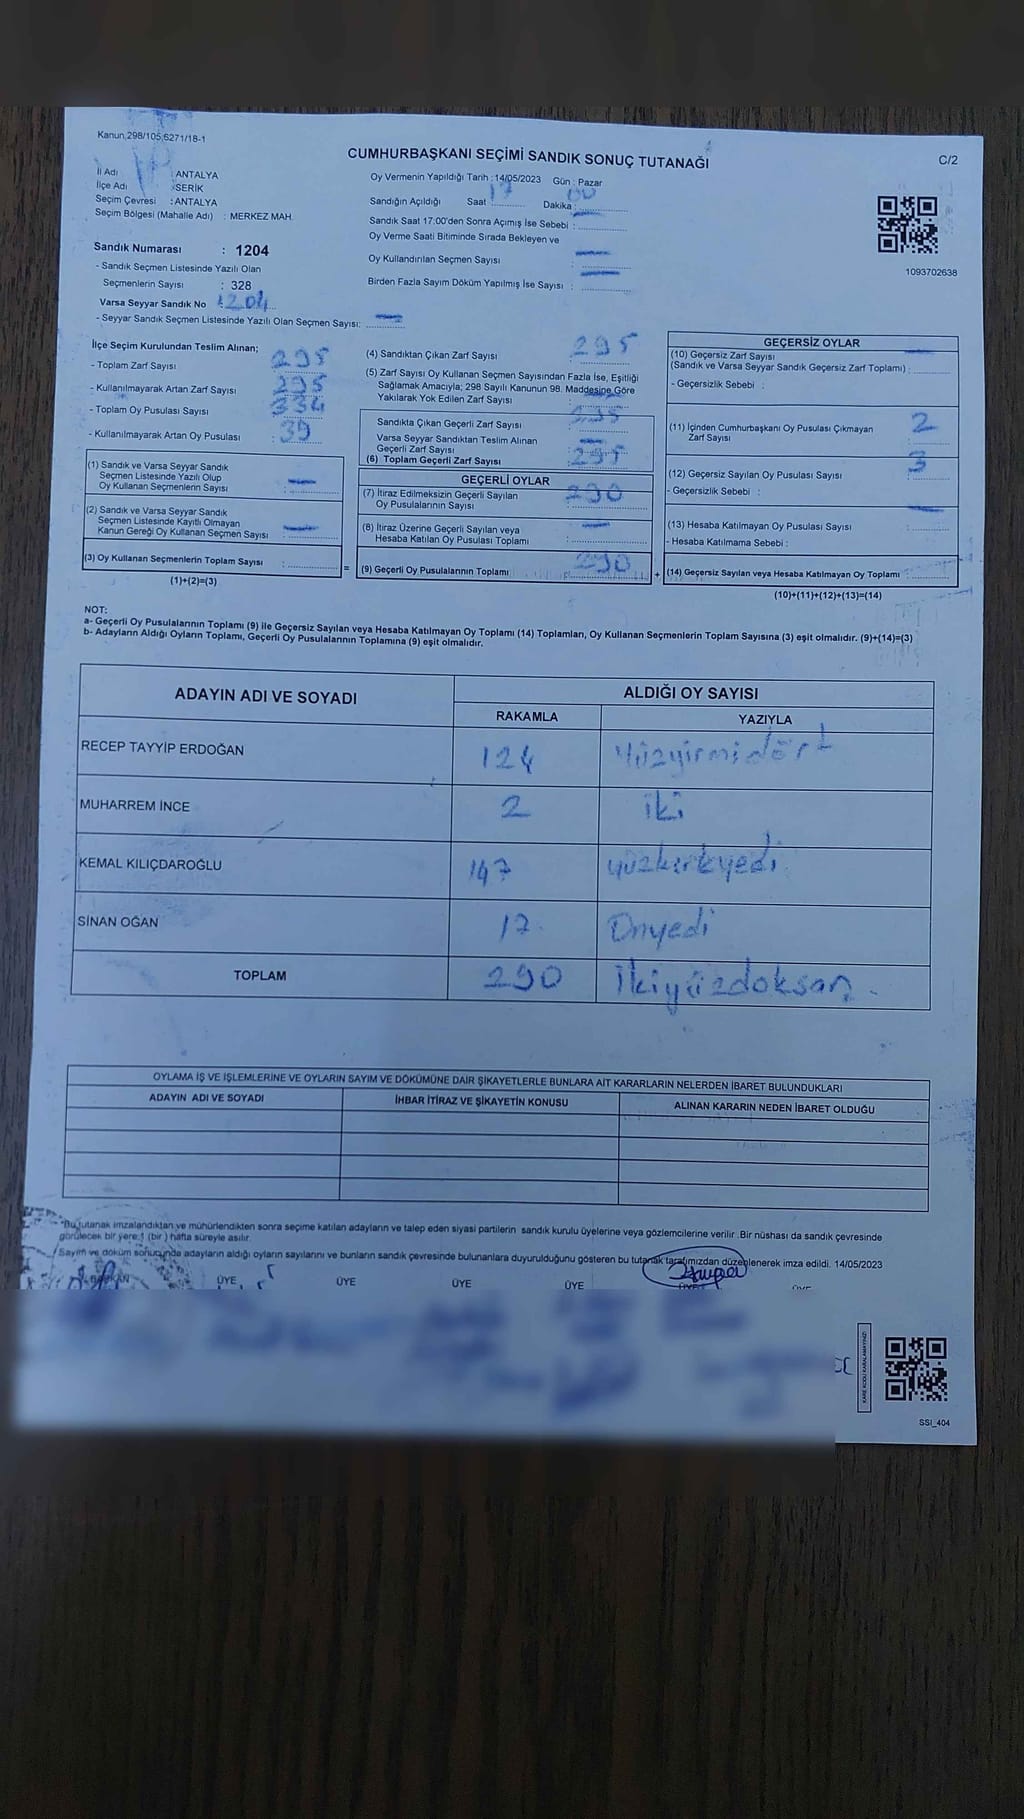 Kanun,298/105,6271/18-1
CUMHURBAŞKANI SEÇİMİ SANDIK SONUÇ TUTANAĞI
C/2
İl Adı : ANTALYA
İlçe Adı : SERİK
Seçim Çevresi : ANTALYA
Seçim Bölgesi (Mahalle Adı) : MERKEZ MAH.
Oy Vermenin Yapıldığı Tarih :14/05/2023 Gün : Pazar
Sandığın Açıldığı Saat 17 Dakika : 00
Sandık Saat 17:00'den Sonra Açımış İse Sebebi :
Oy Verme Saati Bitiminde Sırada Bekleyen ve
Oy Kullandırılan Seçmen Sayısı :
Birden Fazla Sayım Döküm Yapılmış İse Sayısı :
1093702638
Sandık Numarası : 1204
- Sandık Seçmen Listesinde Yazılı Olan
Seçmenlerin Sayısı : 328
Varsa Seyyar Sandık No : 1204
- Seyyar Sandık Seçmen Listesinde Yazılı Olan Seçmen Sayısı:
İlçe Seçim Kurulundan Teslim Alınan;
- Toplam Zarf Sayısı : 295
- Kullanılmayarak Artan Zarf Sayısı : 295
- Toplam Oy Pusulası Sayısı : 334
- Kullanılmayarak Artan Oy Pusulası : 39
(1) Sandık ve Varsa Seyyar Sandık
Seçmen Listesinde Yazılı Olup
Oy Kullanan Seçmenlerin Sayısı :
(2) Sandık ve Varsa Seyyar Sandık
Seçmen Listesinde Kayıtlı Olmayan
Kanun Gereği Oy Kullanan Seçmen Sayısı :
(3) Oy Kullanan Seçmenlerin Toplam Sayısı :
(1)+(2)=(3)
=
(4) Sandıktan Çıkan Zarf Sayısı : 295
(5) Zarf Sayısı Oy Kullanan Seçmen Sayısından Fazla İse, Eşitliği
Sağlamak Amacıyla; 298 Sayılı Kanunun 98. Maddesine Göre
Yakılarak Yok Edilen Zarf Sayısı :
Sandıkta Çıkan Geçerli Zarf Sayısı : 295
Varsa Seyyar Sandıktan Teslim Alınan
Geçerli Zarf Sayısı :
(6) Toplam Geçerli Zarf Sayısı : 295
GEÇERLİ OYLAR
(7) İtiraz Edilmeksizin Geçerli Sayılan
Oy Pusulalarının Sayısı : 290
(8) İtiraz Üzerine Geçerli Sayılan veya
Hesaba Katılan Oy Pusulası Toplamı :
(9) Geçerli Oy Pusulalarının Toplamı : 290
+
GEÇERSİZ OYLAR
(10) Geçersiz Zarf Sayısı
(Sandık ve Varsa Seyyar Sandık Geçersiz Zarf Toplamı) :
- Geçersizlik Sebebi :
(11) İçinden Cumhurbaşkanı Oy Pusulası Çıkmayan
Zarf Sayısı : 2
(12) Geçersiz Sayılan Oy Pusulası Sayısı : 3
- Geçersizlik Sebebi :
(13) Hesaba Katılmayan Oy Pusulası Sayısı :
- Hesaba Katılmama Sebebi :
(14) Geçersiz Sayılan veya Hesaba Katılmayan Oy Toplamı :
(10)+(11)+(12)+(13)=(14)
NOT:
a- Geçerli Oy Pusulalarının Toplamı (9) ile Geçersiz Sayılan veya Hesaba Katılmayan Oy Toplamı (14) Toplamları, Oy Kullanan Seçmenlerin Toplam Sayısına (3) eşit olmalıdır. (9)+(14)=(3)
b- Adayların Aldığı Oyların Toplamı, Geçerli Oy Pusulalarının Toplamına (9) eşit olmalıdır.
ADAYIN ADI VE SOYADI
ALDIĞI OY SAYISI
RAKAMLA YAZIYLA
RECEP TAYYİP ERDOĞAN 124 Yüzyirmidört
MUHARREM İNCE 2 iki
KEMAL KILIÇDAROĞLU 147 yüzkırkyedi
SİNAN OĞAN 17 Onyedi
TOPLAM 290 İkiyüzdoksan
OYLAMA İŞ VE İŞLEMLERİNE VE OYLARIN SAYIM VE DÖKÜMÜNE DAİR ŞİKAYETLERLE BUNLARA AİT KARARLARIN NELERDEN İBARET BULUNDUKLARI
ADAYIN ADI VE SOYADI İHBAR İTİRAZ VE ŞİKAYETİN KONUSU ALINAN KARARIN NEDEN İBARET OLDUĞU
Bu tutanak imzalandıktan ve mühürlendikten sonra seçime katılan adayların ve talep eden siyasi partilerin sandık kurulu üyelerine veya gözlemcilerine verilir. Bir nüshası da sandık çevresinde
görülecek bir yere 1 (bir) hafta süreyle asılır.
Sayım ve döküm sonucunda adayların aldığı oyların sayılarını ve bunların sandık çevresinde bulunanlara duyurulduğunu gösteren bu tutanak tarafımızdan düzenlenerek imza edildi. 14/05/2023
BAŞKAN ÜYE ÜYE ÜYE ÜYE ÜYE ÜYE
KARE KODU KARALAMAYINIZ!
SSI_404